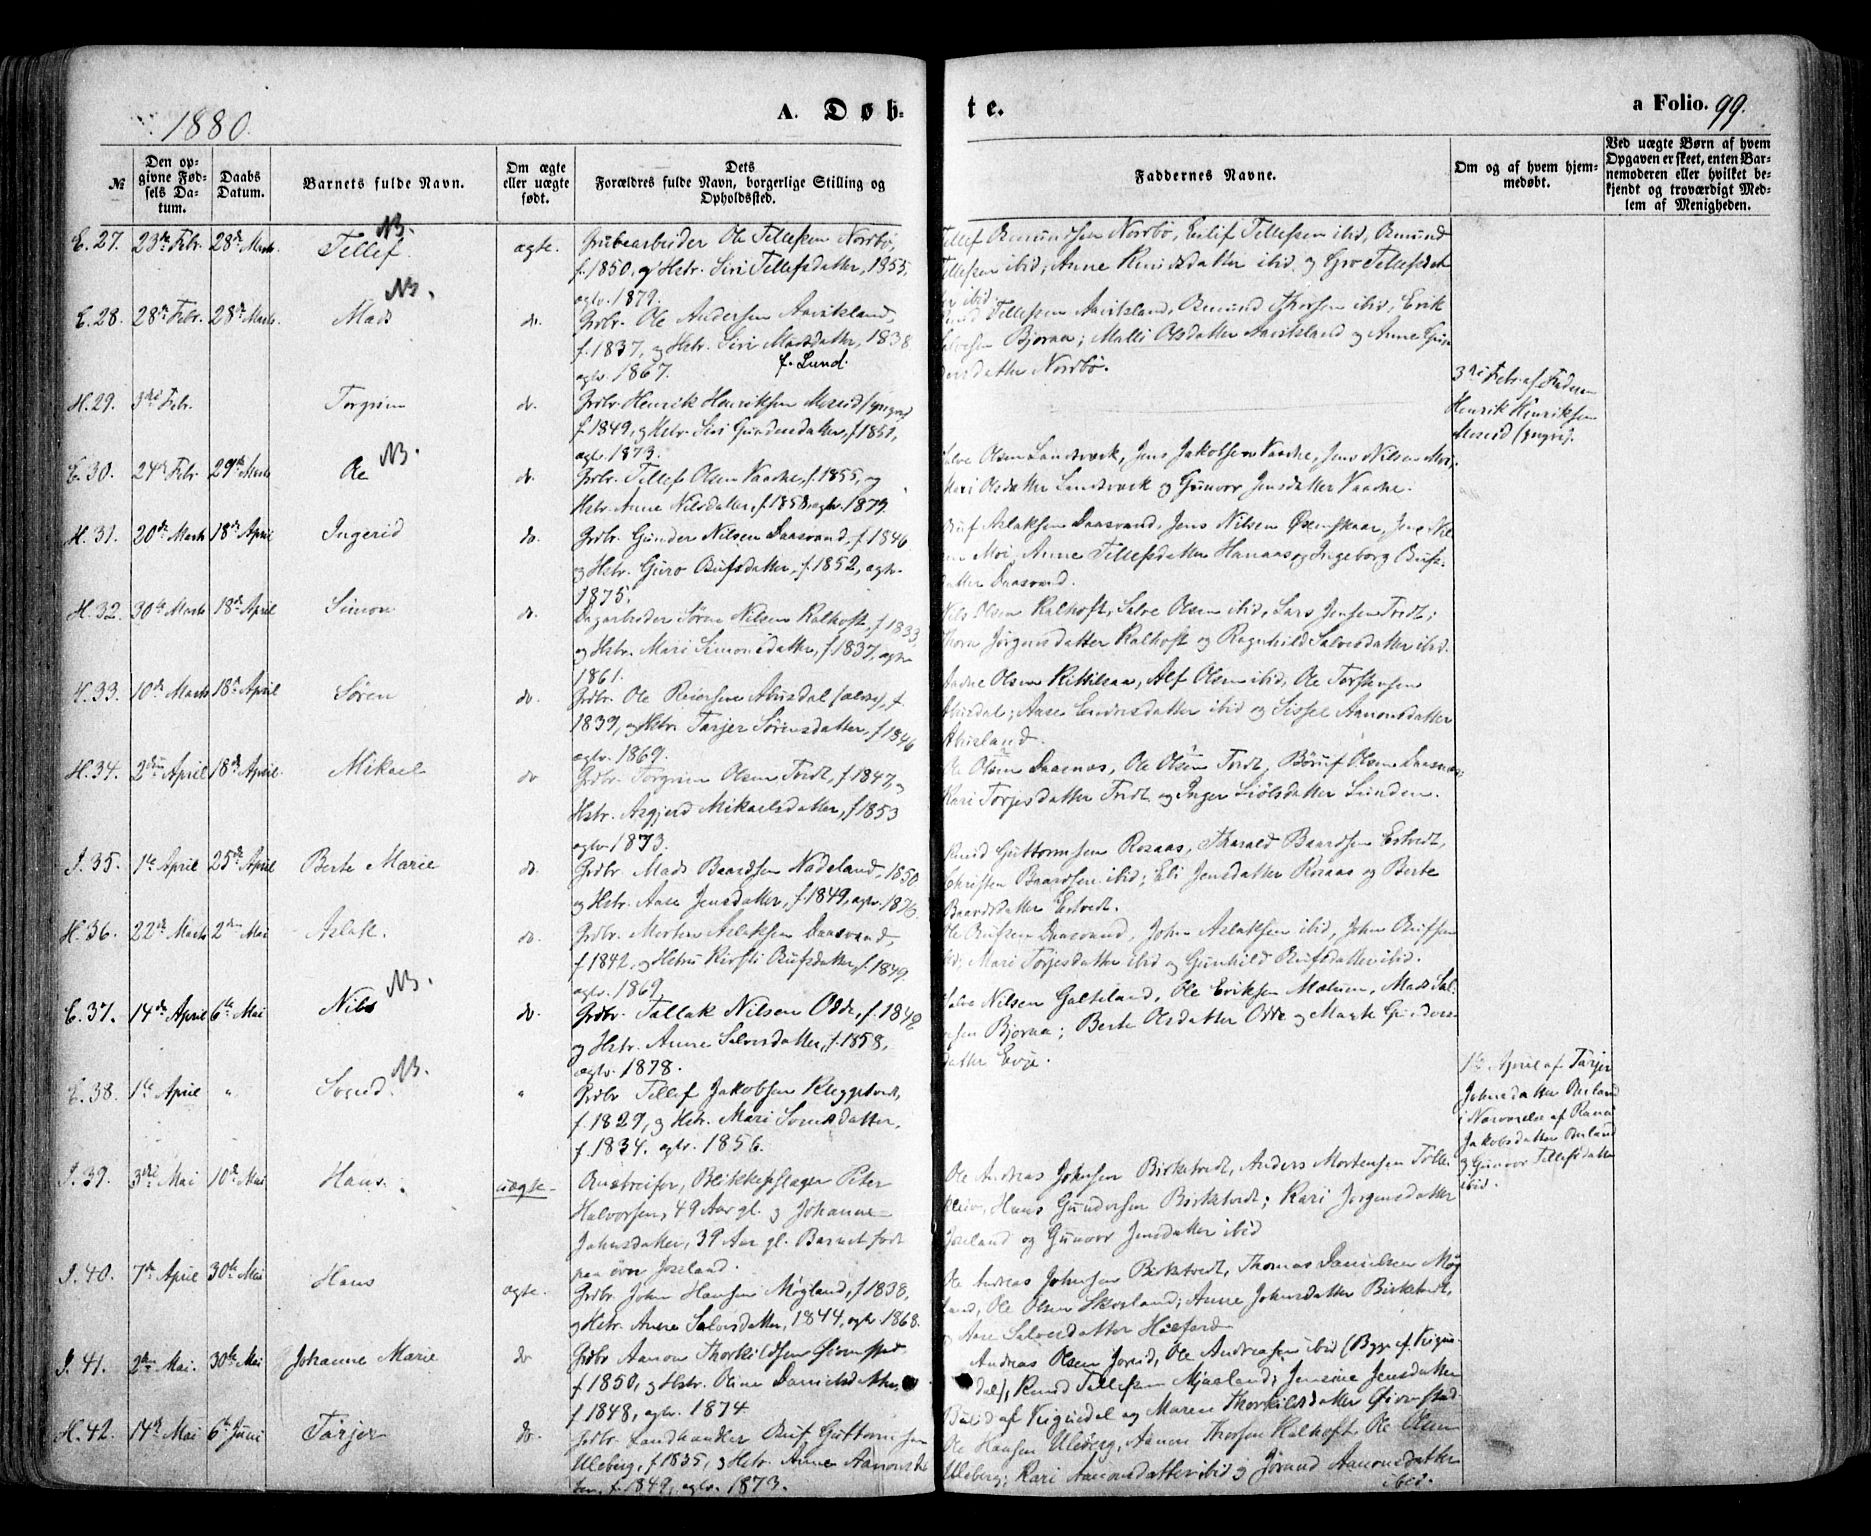 1880.
A. Døb-
te.
a Folio. 99.
№
Den op-
givne Fød-
sels Da-
tum.
Daabs
Datum.
Barnets fulde Navn.
Om ægte
eller uægte
født.
Dets
Forældres fulde Navn, borgerlige Stilling og
Opholdssted.
Faddernes Navne.
Om og af hvem hjem-
medøbt.
Ved uægte Børn af hvem
Opgaven er skeet, enten Bar-
nemoderen eller hvilket be-
kjendt og troværdigt Med-
lem af Menigheden.
E. 27. 23de Febr. 28de Marts. Tellef NB. ægte.
Grubearbeider Ole Tellefsen Nordbø,
f. 1850, og Hstr. Siri Tellefsdatter, 1855,
egtv. 1879.
Tellef Osmundsen Nordbø, Eilif Tellefsen ibid, Osmund
Tellefsen ibid; Anne Knudsdatter ibid og Gro Tellefsdat
ter ibid.
E. 28. 28de Febr. 28de Marts. Mads NB. do.
Grdbr. Ole Andersen Aavitsland,
f. 1837, og Hstr. Siri Madsdatter, 1838
egtv. 1867. f. Lund.
Tellefsen Aavitsland, Osmund Thorsen ibid, Erik
Salvesen Bjoraa; Malli Olsdatter Aavitsland og Anne
datter Nordbø.
H. 29. 3die Febr. Torgrim do.
Grdbr. Henrik Henriksen Moseid (yngre)
f. 1849, og Hstr. Siri Gundersdatter, f. 1851,
egtv. 1873.
3die Febr. af Faderen
Henrik Henriksen
Moseid (yngre).
E. 30. 24de Febr. 29de Marts Ole NB. do.
Grdbr. Tellef Olsen Vaadne, f. 1855, og
Hstr. Anne Nilsdatter, f. 1858, egtv. 1879.
Salve Olsen Landsverk, Jens Jakobsen Vaadne, Jens Nilsen Moi;
Mari Olsdatter Landsverk og Gunvor Jensdatter Vaadne.
H. 31. 20de Marts 18de April Ingerid do.
Grdbr. Gunder Nilsen Daasvand, f. 1846
og Hstr. Guro Bufsdatter, f. 1852, egtv.
1875.
Buf Aslaksen Daasvand, Jens Nilsen Øsenskaar, Jens Nil
sen Moi; Anne Tellefsdatter Hanaas og Ingeborg Bufs-
datter Daasvand.
H. 32. 30te Marts 18de April Simon do.
Dagarbeider Søren Nilsen Kalhoft, f. 1833,
og Hstr. Mari Simonsdatter, f. 1837, egtv
1861.
Nils Olsen Kalhoft, Salve Olsen ibid, Lars Jensen Tvedt;
Thore Jørgensdatter Kalhoft og Ragnhild Salvesdatter ibid.
H. 33. 10de Marts 18de April Søren do.
Grdbr. Ole Reiersen Abusdal (ældre), f.
1839, og Hstr. Tarjer Sørensdatter, f. 1846
egtv. 1869.
Aadne Olsen Kittilsaa, Alf Olsen ibid, Ole Torstensen
Abusdal; Aase Endresdatter ibid og Sissel Aanonsdatter
Abusland.
H. 34. 2den April 18de April Mikael do
Grdbr. Torgrim Olsen Tvedt, f. 1847, og
Hstr. Asgjerd Mikaelsdatter, f. 1853
egtv 1873.
Ole Olsen Daasnes, Ole Olsen Tvedt, Børuf Olsen Daasnes;
Kari Torjesdatter Tvedt og Inger Siølsdatter Lunden.
I. 35. 1te April 25de April Berte Marie do.
Grdbr. Mads Baardsen Nadeland, 1850
og Hstr. Aase Jensdatter, f. 1849, egtv. 1876.
Knud Guttormsen Rosaas, Tharald Baardsen Estvedt,
Christen Baardsen ibid; Eli Jensdatter Rosaas og Berte
Baardsdatter Estvedt.
H. 36. 22de Marts 2den Mai Aslak. do.
Grdbr. Morten Aslaksen Daasvand,
f. 1842, og Hstru Kirsti Bufsdatter, f. 1849.
egtv. 1869.
Ole Bufsen Daasvand, John Aslaksen ibid, John Bufsen
ibid; Mari Torjesdatter ibid og Gunhild Bufsdatter ibid.
E. 37. 14de April 6te Mai Nils NB. do.
Grdbr. Tallak Nilsen Odde, f. 1848
og Hstr. Anne Salvesdatter, f. 1858,
egtv. 1878.
Salve Nilsen Galteland, Ole Eriksen Moleim, Mads Sal-
vesen Bjoraa; Berte Olsdatter Odde og Marte Gunders
datter Evje.
E. 38. 1te April " Svend NB. "
Grdbr Tellef Jakobsen Kleggetvedt,
f. 1829, og Hstr. Mari Svensdatter,
f. 1834. egtv. 1856.
1te April af Tarjer
Johnsdatter Birland
i Nærværelse af
Jakobsdatter Birland
og Gunvor Tellefsdatter
ibid.
I. 39. 3die Mai 10de Mai Hans uægte
Omstreifer, Blikkenslager Peter
Halvorsen, 49 Aar gl. og Johanne
Johnsdatter, 39 Aar gl. Barnet født
paa øvre Joreland.
Ole Andreas Johnsen Birketvedt, Anders Mortensen
Hans Gundersen Birketvedt; Kari Jørgensdatter
Joreland og Gunvor Jensdatter ibid
I. 40. 7de April 30te Mai Hans ægte.
Grdbr. John Hansen Møgland, f. 1838,
og Hstr. Anne Salvesdatter, 1844, egtv 1868.
Ole Andreas Johnsen Birketvedt, Thomas Danielsen Møg
land, Ole Olsen Skoeland; Anne Johnsdatter Birketvedt,
og Aase Salvesdatter
I. 41. 2den Mai. 30te Mai Johanne Marie do
Grdbr Aanon Thorkildsen Øvernstad
f. 1850, og Hstr. Oline Danielsdatter,
f. 1848, egtv. 1874.
Andreas Olsen Joreid, Ole Andreassen ibid (Bygl
Knud Tellefsen Mjaaland; Jensine Jensdatter
og Maren Thorkildsdatter Øvernstad.
H. 42. 14de Mai 6te Juni Tarjer do.
Grdbr. Landhandler Buf Guttormsen
Uleberg, f. 1835, og Hstr. Anne Aanonsdat
ter, f. 1849, egtv. 1873.
Ole Hansen Uleberg, Aanon Thorsen Kalhoft, Ole Olsen
Uleberg; Kari Aanonsdatter ibid og Jorand Aanonsdatter
ibid.